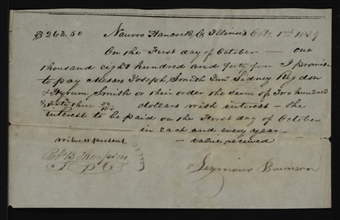 $263.50 Nauvoo Hancock Co Illinois Oct 1st 1839
On the First day of October — one
thousand eight hundred and forty four I promise
to pay Messrs Joseph Smith Jun Sidney Rigdon
& Hyrum Smith or their order the sum of Two hundred
& Sixty three 50/100 dollars with interest — the
interest to be paid on the First day of October
in each and every year —
witness present — value received
Thompson
Seymour Brunson